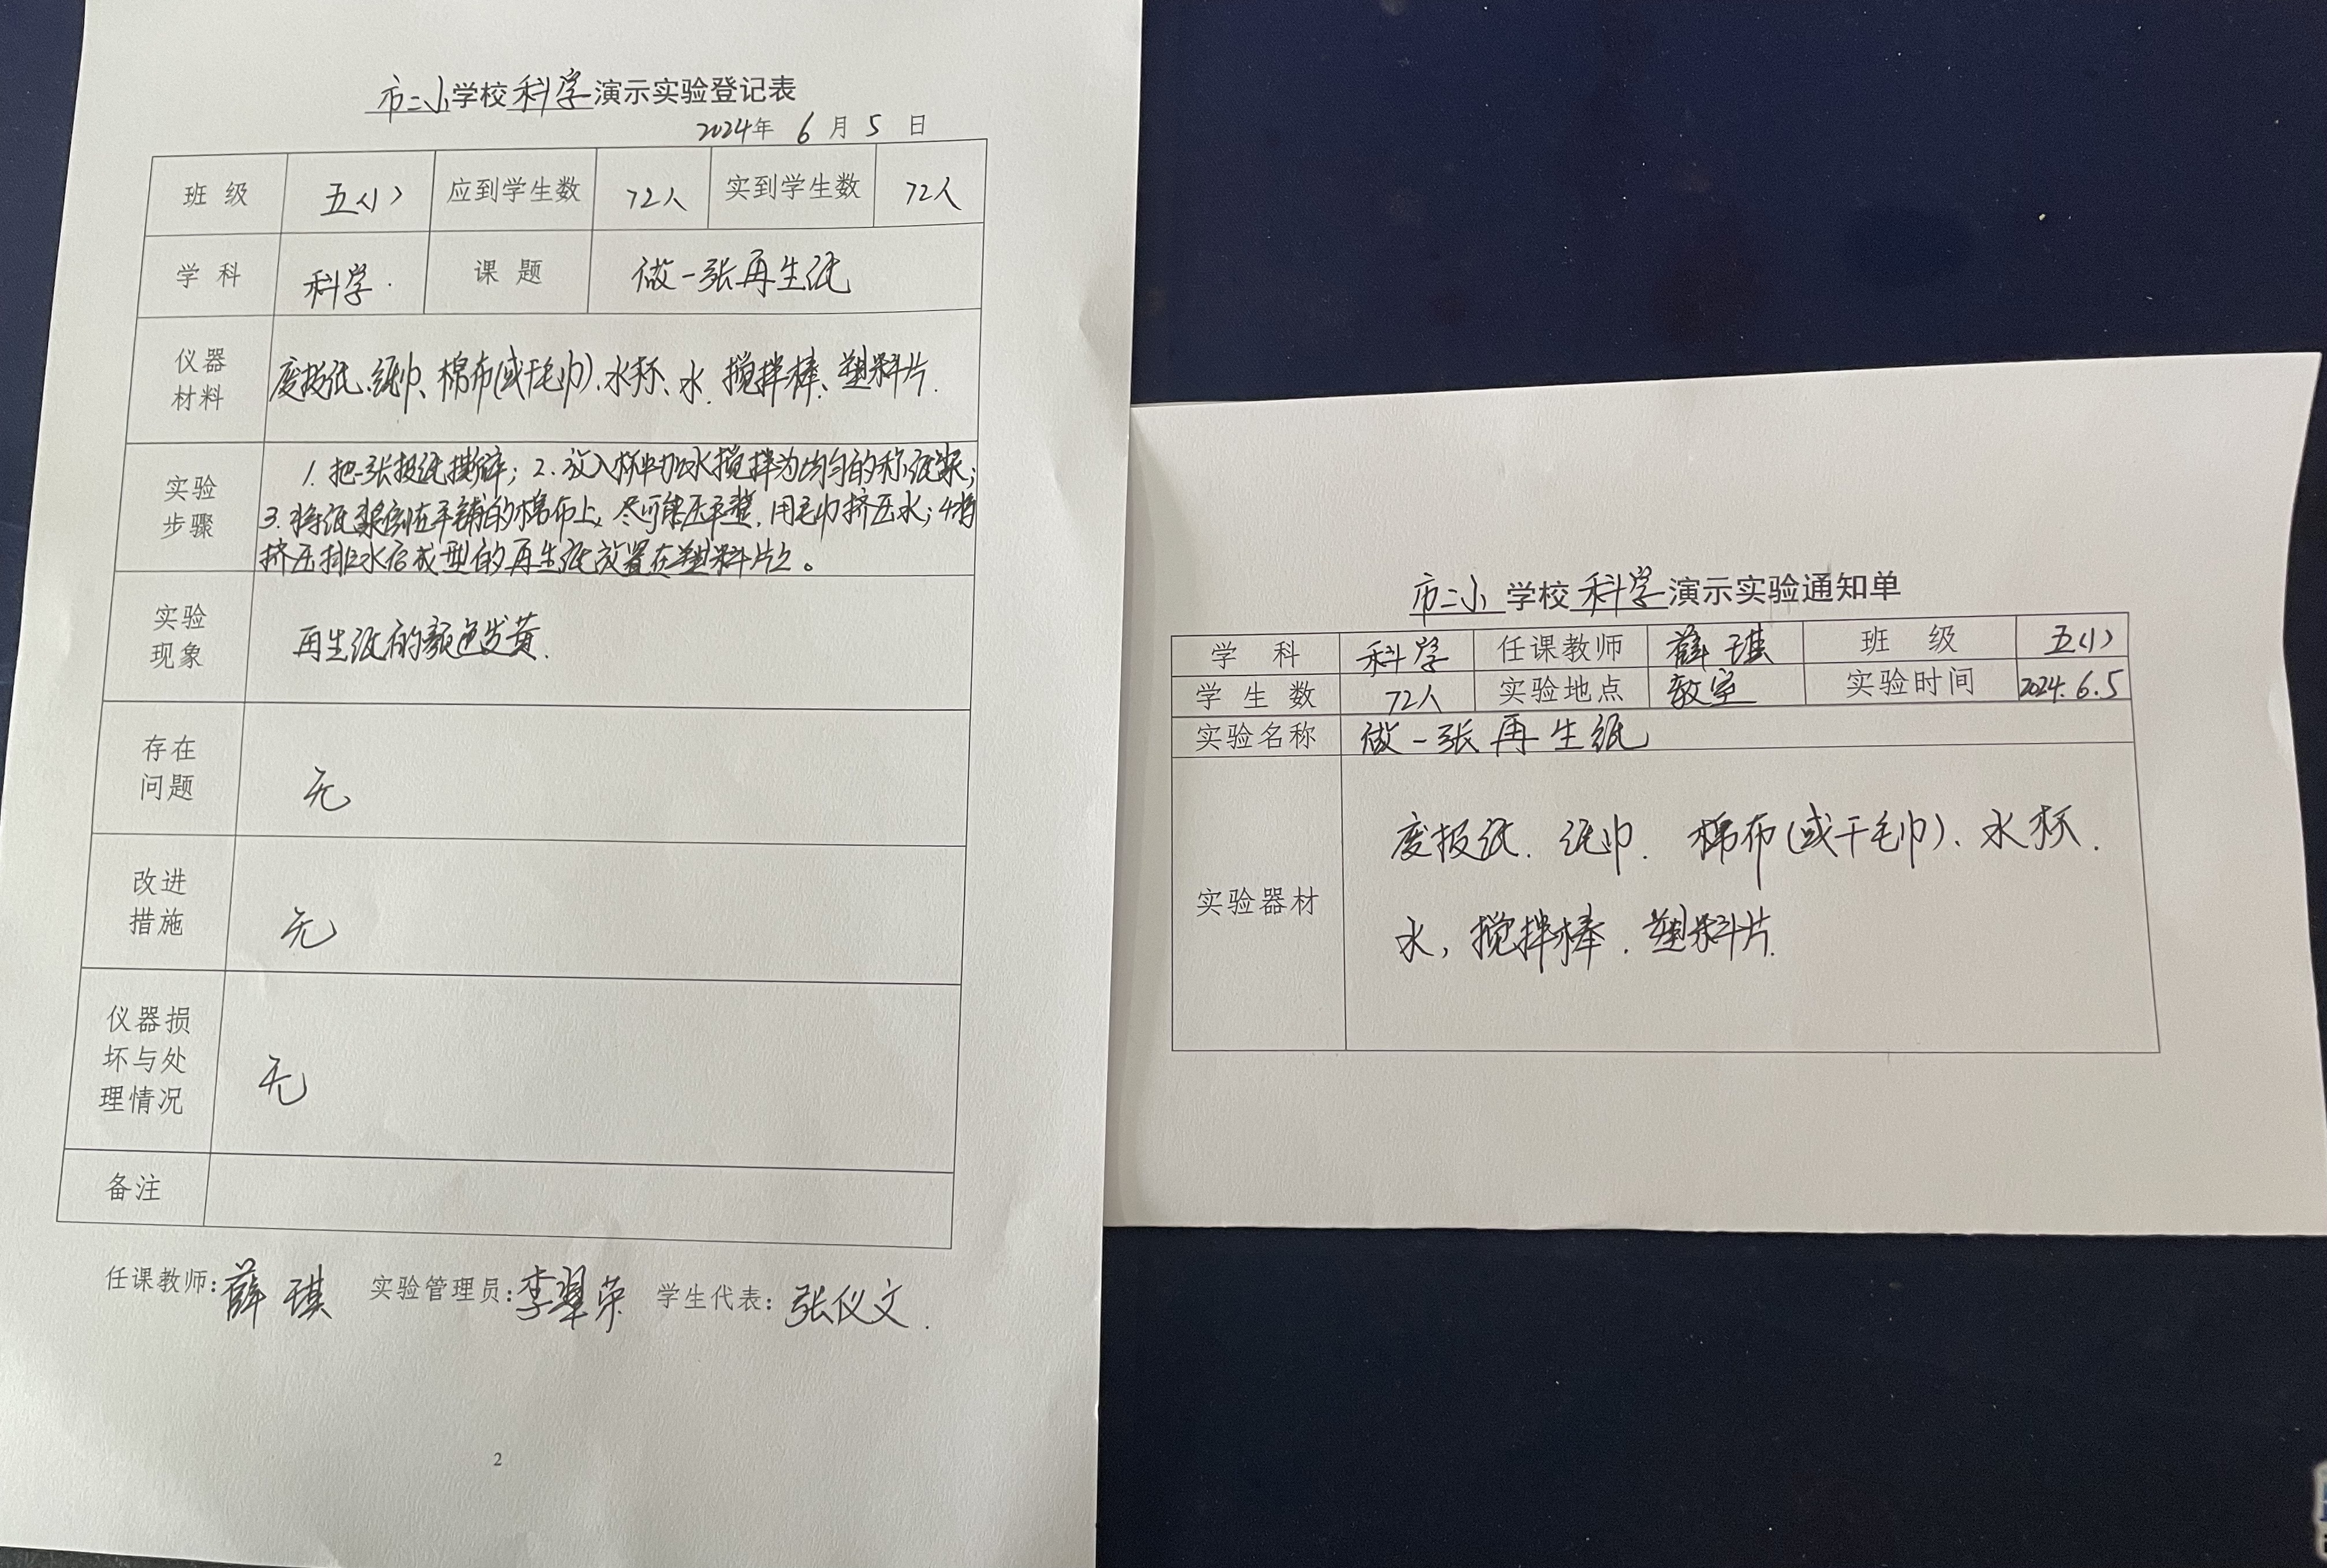 市二小学校科学演示实验登记表
2024年 6 月 5 日
班 级 五(1) 应到学生数 72人 实到学生数 72人
学 科 科学. 课 题 做一张再生纸
仪器
材料
废报纸、纸巾、棉布(或干毛巾)、水杯、水、搅拌棒、塑料片.
实验
步骤
1. 把一张报纸撕碎; 2. 放入杯中加水搅拌为均匀的稀纸浆;
3. 将纸浆倒在平铺的棉布上, 尽可能压平整, 用毛巾挤压水; 4.将
挤压排水后成型的再生纸放置在塑料片上。
实验
现象
再生纸的颜色发黄.
存在
问题
无
改进
措施
无
仪器损
坏与处
理情况
无
备注
任课教师: 薛琪 实验管理员: 李翠荣 学生代表: 张仪文.
2
市二小学校科学演示实验通知单
学 科 科学 任课教师 薛琪 班 级 五(1)
学 生 数 72人 实验地点 教室 实验时间 2024.6.5
实验名称 做一张再生纸
实验器材
废报纸、纸巾、棉布(或干毛巾)、水杯、
水, 搅拌棒、塑料片.